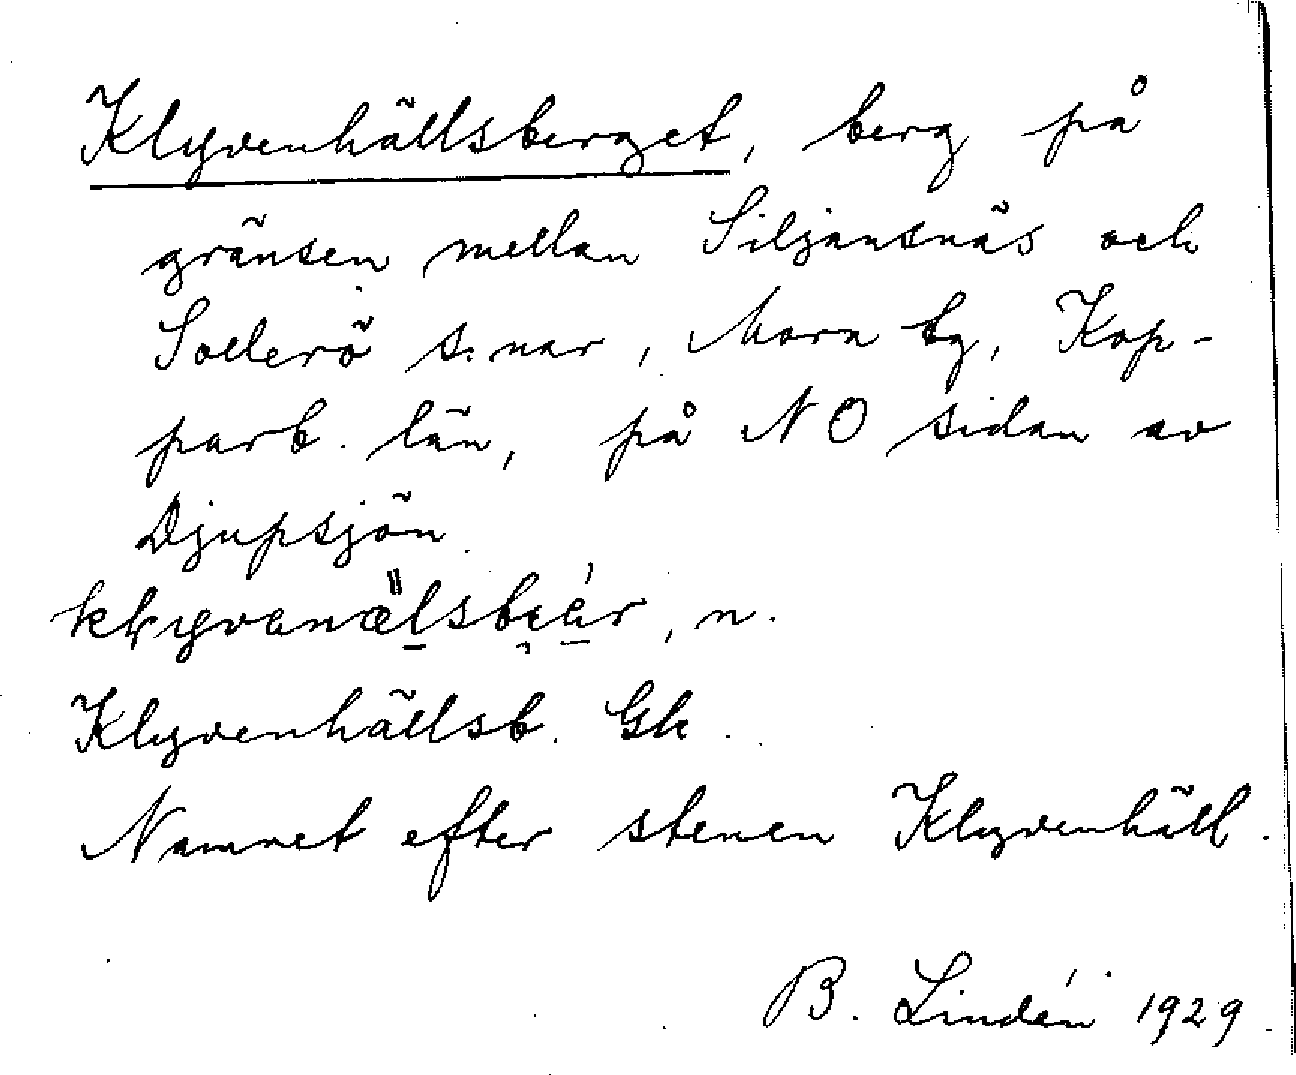 Klyvenhällsberget, berg på
gränsen mellan Siljansnäs och
Sollerö s:nar, Mora tg, Kop-
parb. län, på NO sidan av
Djupsjön.
, n.
Klyvenhällsb. Gk.
Namnet efter stenen Klyvenhäll.
B. Lindén 1929